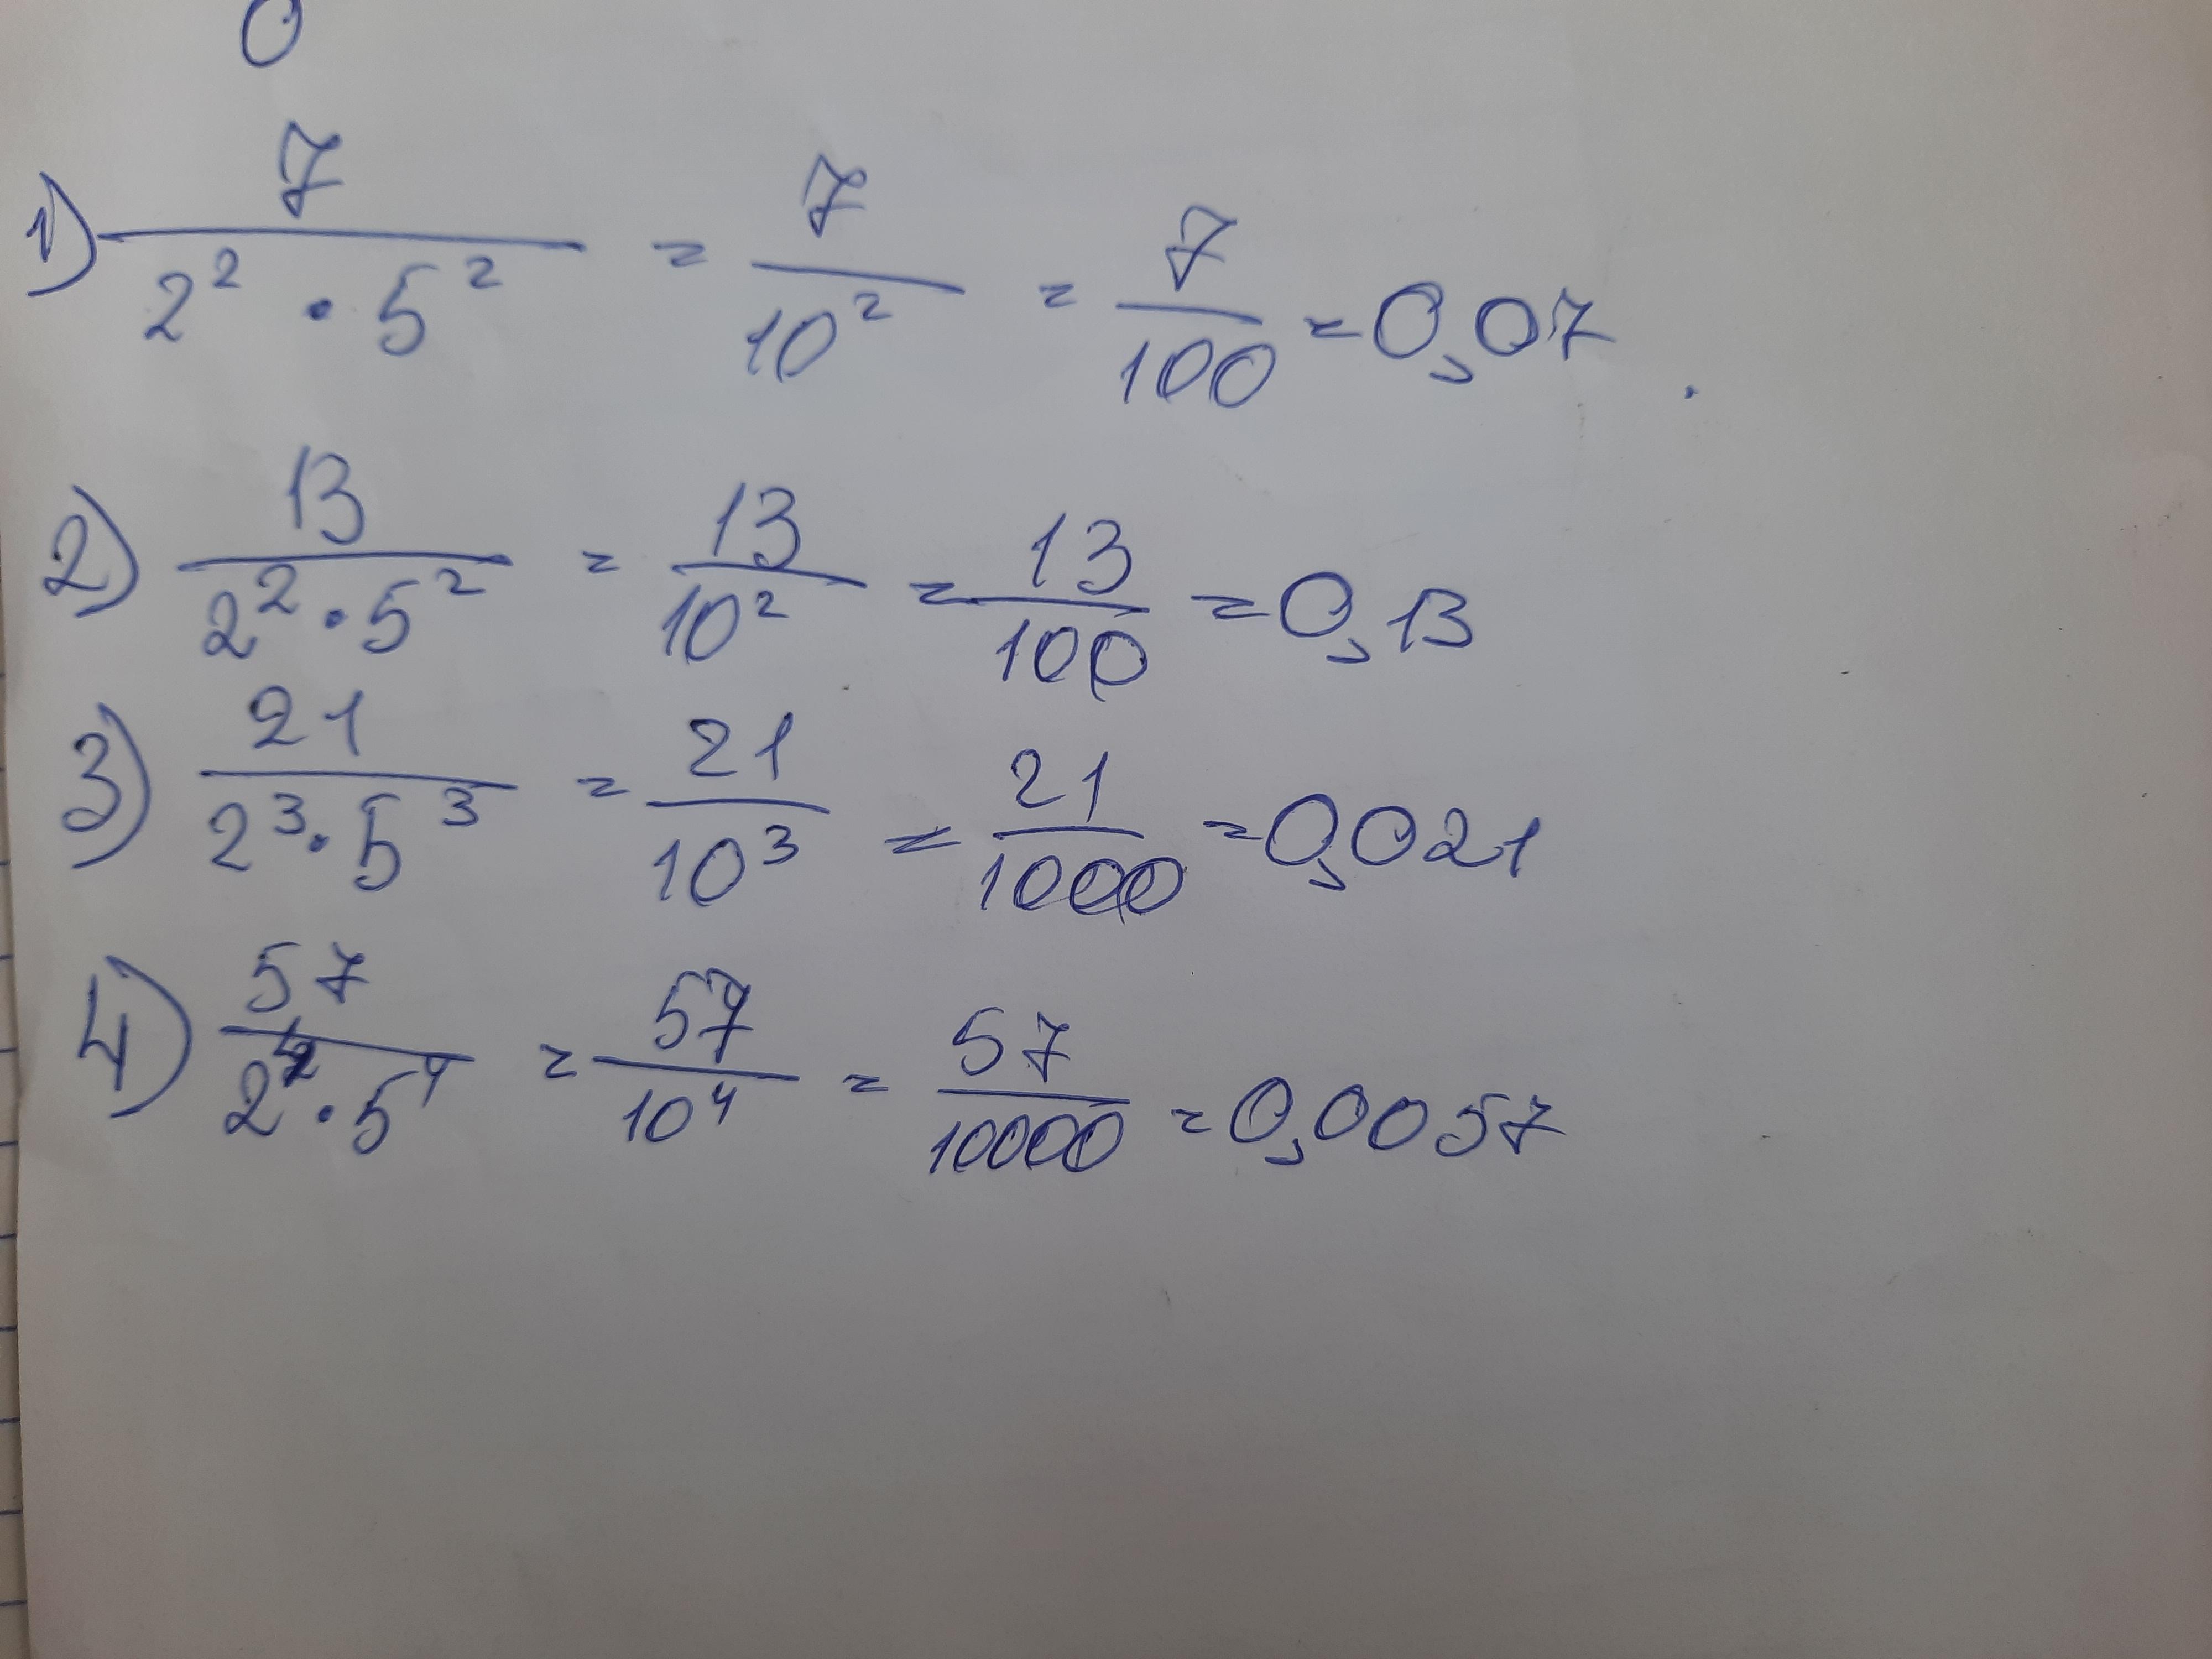 0
1) 7/(2² · 5²) = 7/10² = 7/100 = 0,07.
2) 13/(2² · 5²) = 13/10² = 13/100 = 0,13
3) 21/(2³ · 5³) = 21/10³ = 21/1000 = 0,021
4) 57/(2⁴ · 5⁴) = 57/10⁴ = 57/10000 = 0,0057